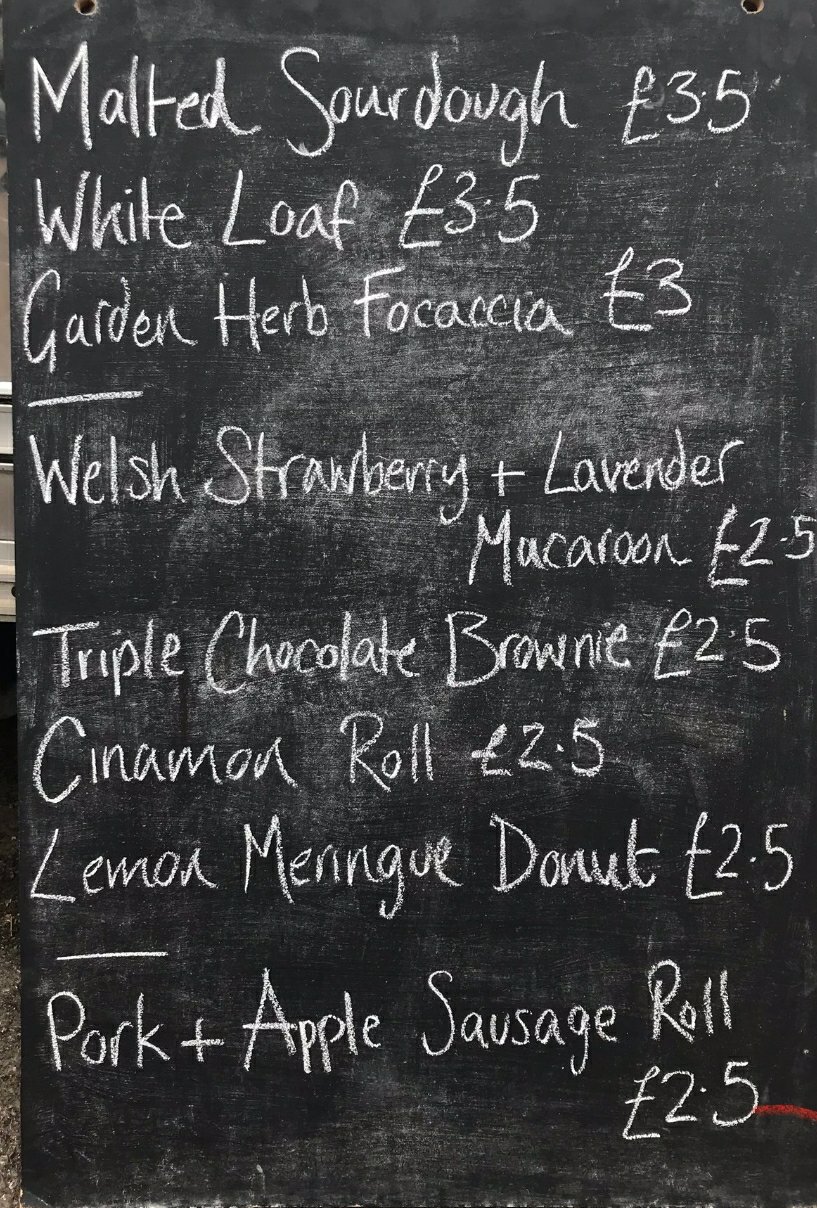 Malted Sourdough £3.5
White Loaf £3.5
Garden Herb Focaccia £3
Welsh Strawberry + Lavender
Macaroon £2.5
Triple Chocolate Brownie £2.5
Cinamon Roll £2.5
Lemon Meringue Donut £2.5
Pork + Apple Sausage Roll
£2.5